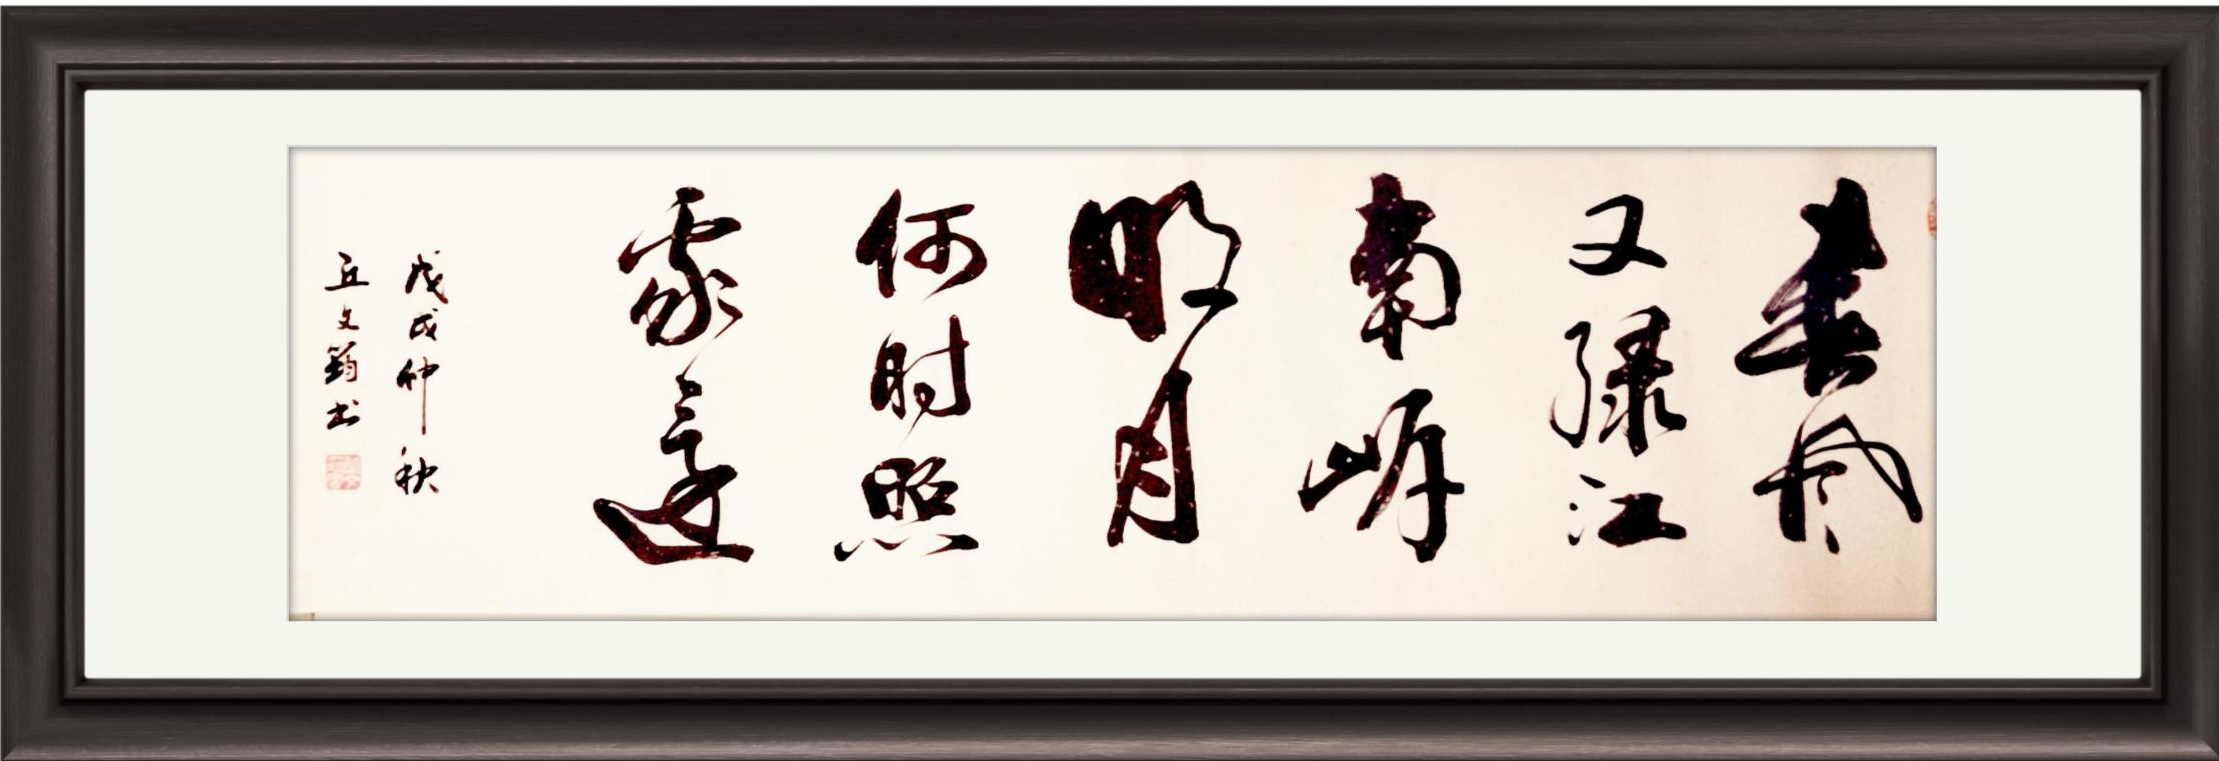 春风
又绿江
南岸
明月
何时照
還
戊戌仲秋
丘文筠书